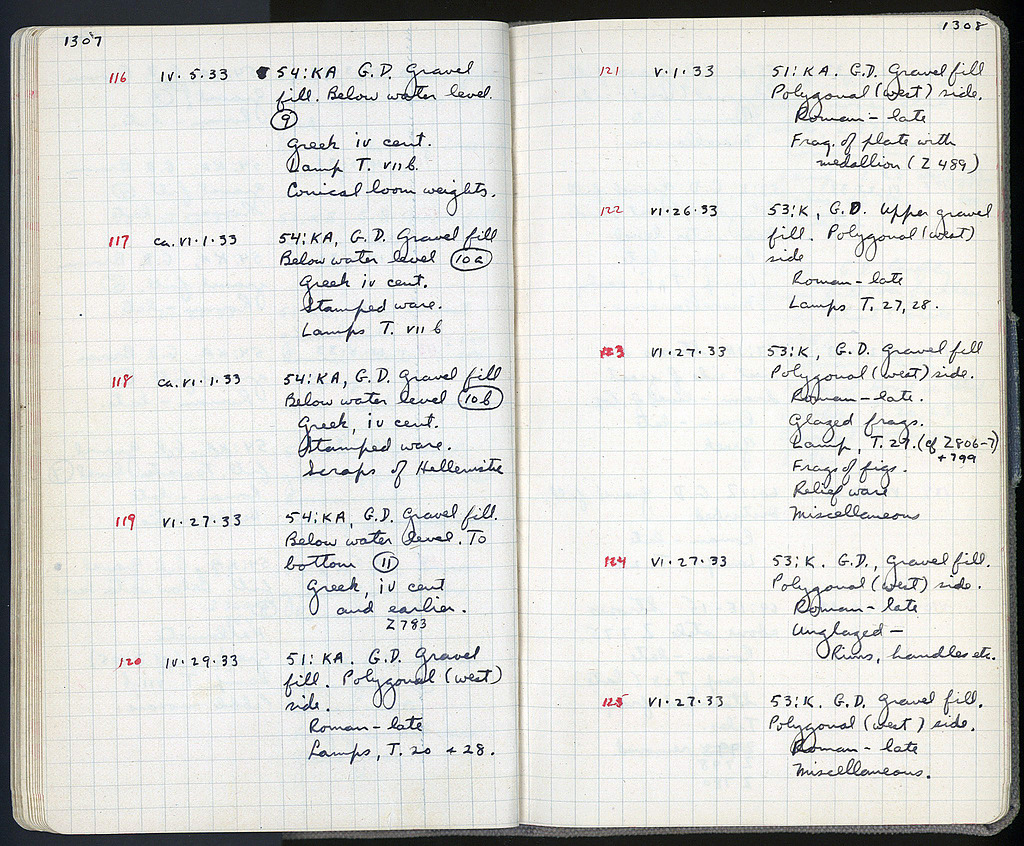 1307
116 IV·5·33 54:KA G.D. Gravel
fill. Below water level.
9
Greek iv cent.
Lamp T. VII b.
Conical loom weights.
117 ca. VI·1·33 54:KA, G.D. Gravel fill
Below water level 10a
Greek iv cent.
Stamped ware.
Lamps T. VII b
118 ca. VI·1·33 54:KA, G.D. Gravel fill
Below water level 10b
Greek, iv cent.
Stamped ware.
Scraps of Hellenistic
119 VI·27·33 54:KA, G.D. Gravel fill.
Below water level. To
bottom 11
Greek, iv cent
and earlier.
Z 783
120 IV·29·33 51:KA. G.D. Gravel
fill. Polygonal (west)
side.
Roman - late
Lamps, T. 20 + 28.
1308
121 V·1·33 51:KA. G.D. Gravel fill
Polygonal (west) side.
Roman - late
Frag. of plate with
medallion (Z 489)
122 VI·26·33 53:K, G.D. Upper gravel
fill. Polygonal (west)
side
Roman - late
Lamps T. 27, 28.
123 VI·27·33 53:K, G.D. Gravel fill
Polygonal (west) side.
Roman - late.
Glazed frags.
Lamp, T. 27. (cf Z 806-7)
+ 799
Frags of figs.
Relief ware
Miscellaneous
124 VI·27·33 53:K. G.D., Gravel fill.
Polygonal (west) side.
Roman - late
Unglazed -
Rims, handles etc.
125 VI·27·33 53:K. G.D. Gravel fill.
Polygonal (west) side.
Roman - late
Miscellaneous.